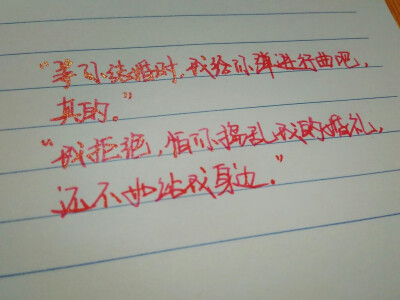 “等你结婚时，我给你弹进行曲吧，
真的。”
“我拒绝，怕你捣乱我的婚礼，
还不如站我身边。”